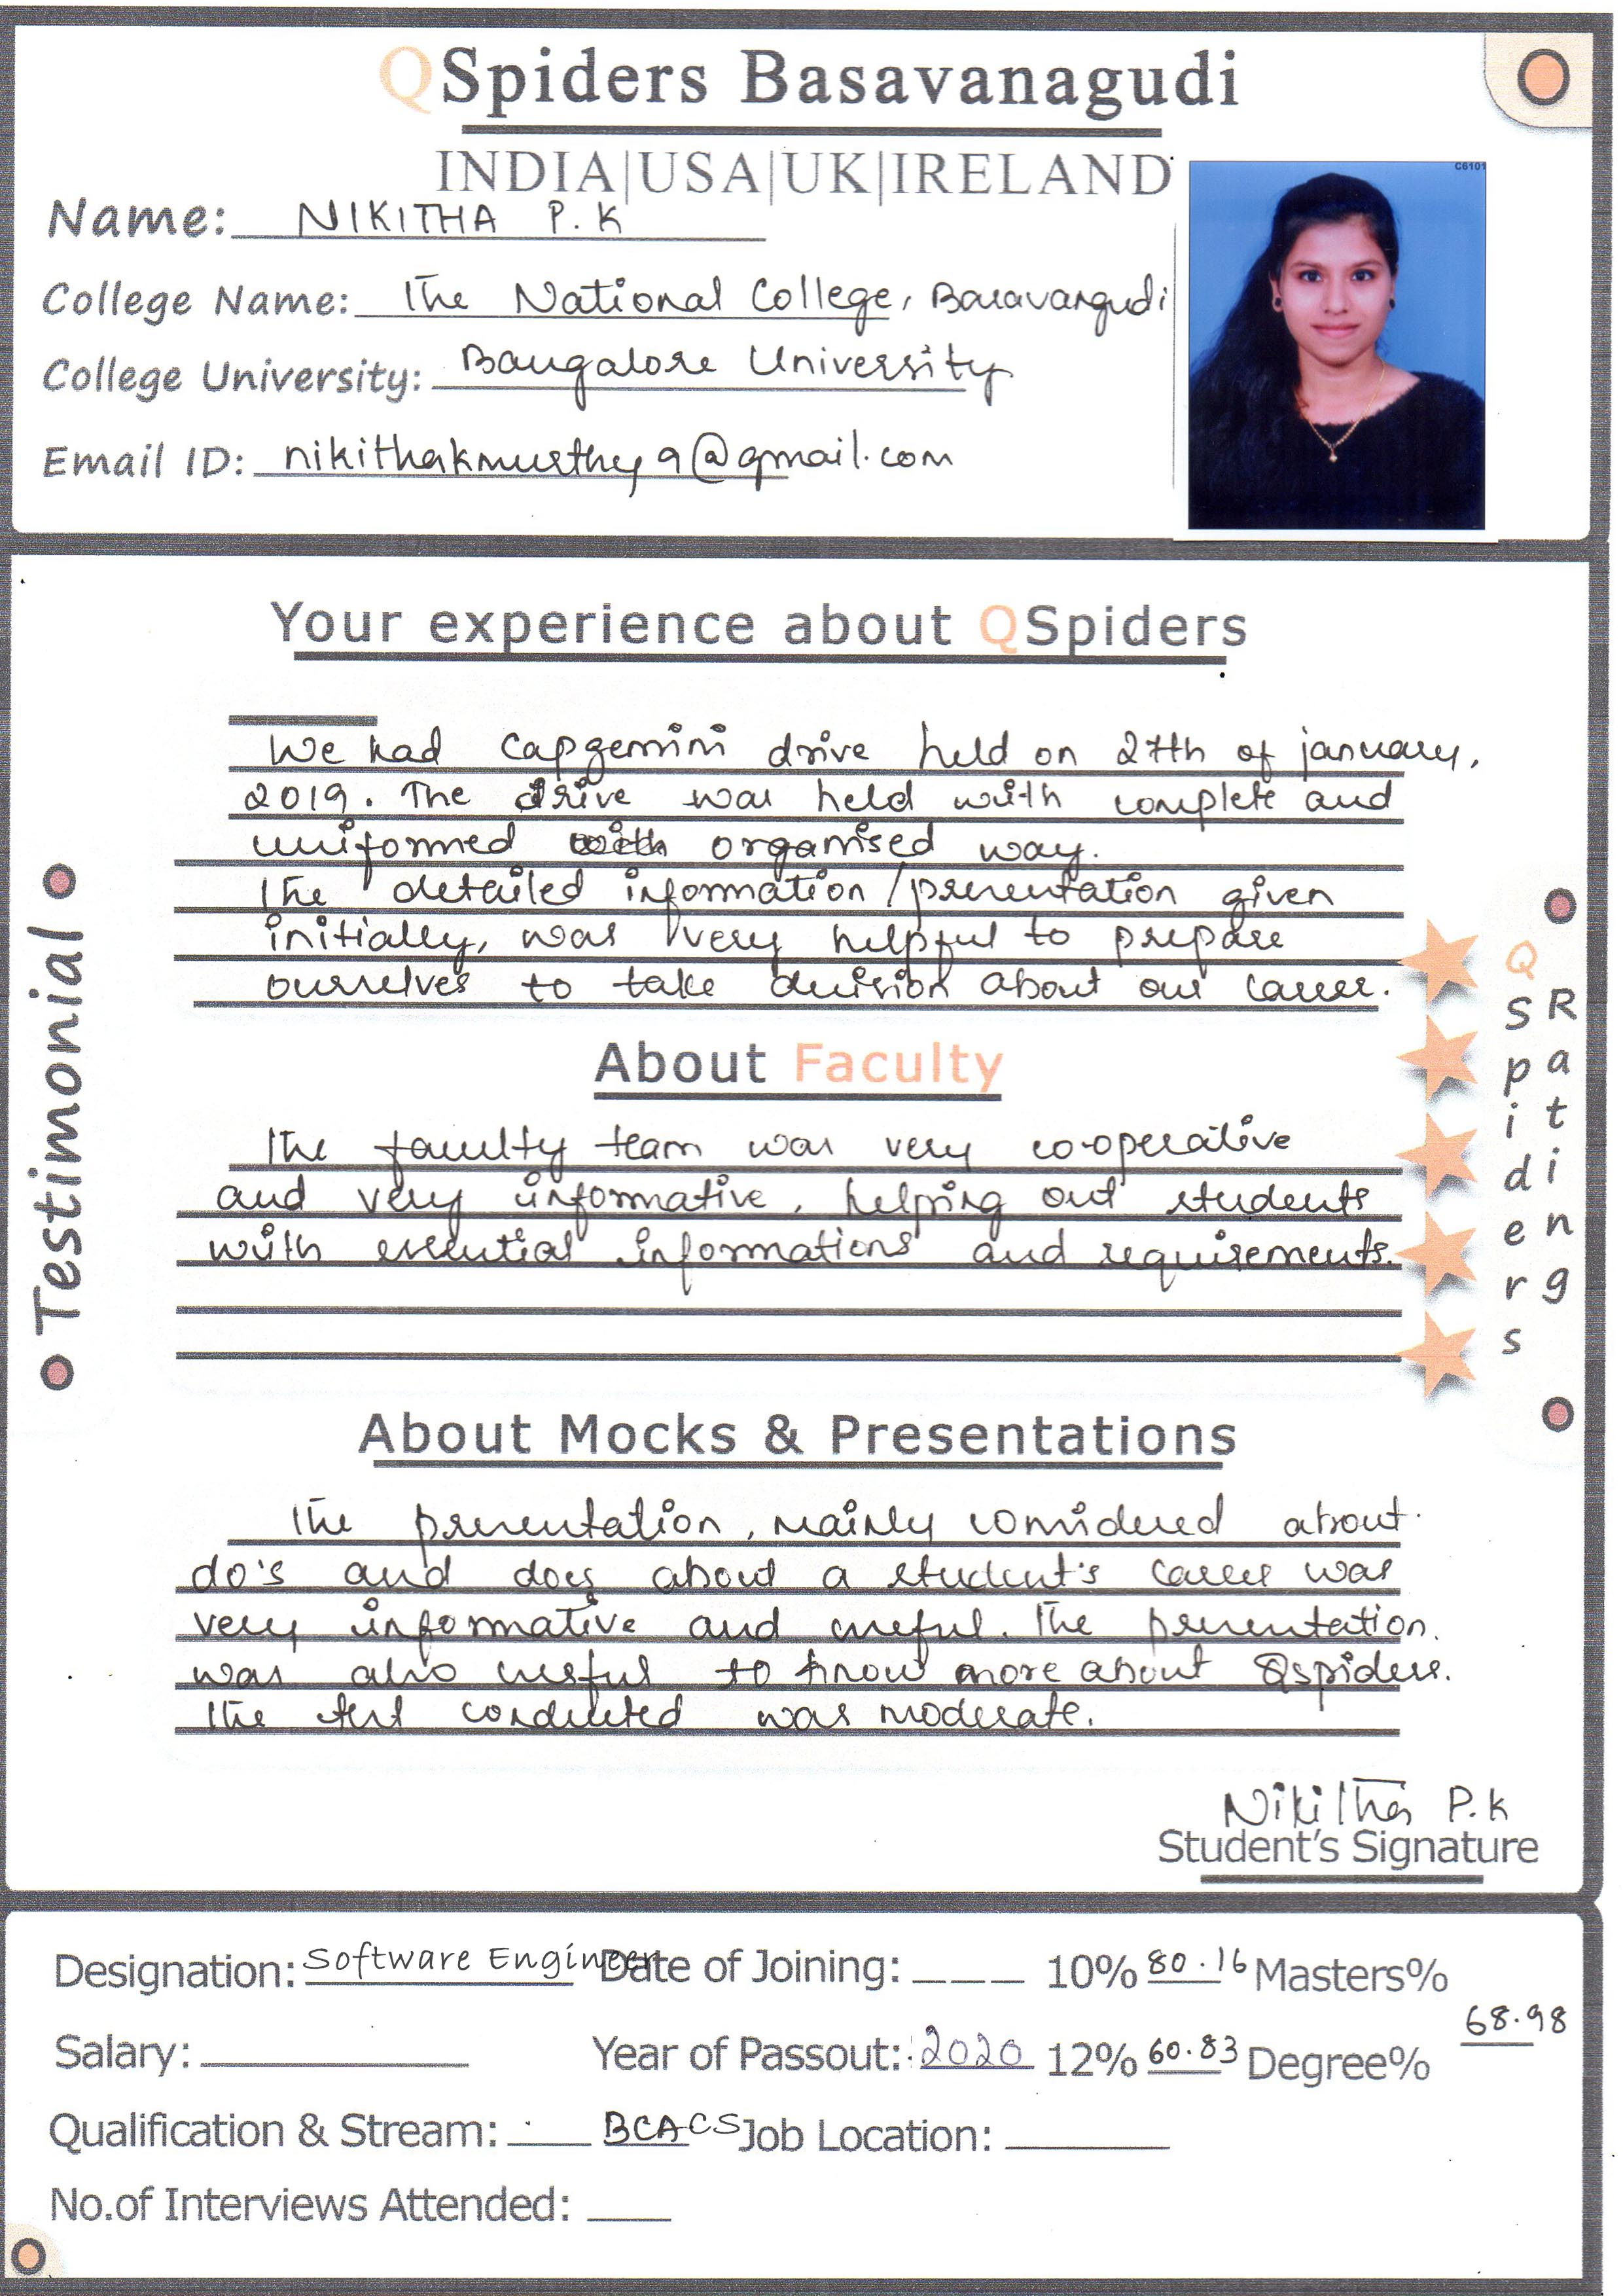 QSpiders Basavanagudi
INDIA|USA|UK|IRELAND
C6101
Name: NIKITHA P.K
College Name: The National College, Basavangudi
College University: Bangalore University
Email ID: nikithakmurthy9@gmail.com
Your experience about QSpiders
We had Capgemini drive held on 27th of january,
2019. The drive was held with complete and
uniformed organised way.
The detailed information/presentation given
initially, was very helpful to prepare
ourselves to take decision about our career.
Testimonial
QSpiders
Ratings
About Faculty
The faculty team was very co-operative
and very informative, helping out students
with essential informations and requirements.
About Mocks & Presentations
The presentation, mainly considered about
do's and does about a student's career was
very informative and useful. The presentation
was also useful to know more about Qspiders.
The test conducted was moderate.
Nikitha P.K
Student's Signature
Designation: Software Engineer Date of Joining: 10% 80.16 Masters%
Salary: Year of Passout: 2020 12% 60.83 Degree% 68.98
Qualification & Stream: BCA CS Job Location:
No.of Interviews Attended: